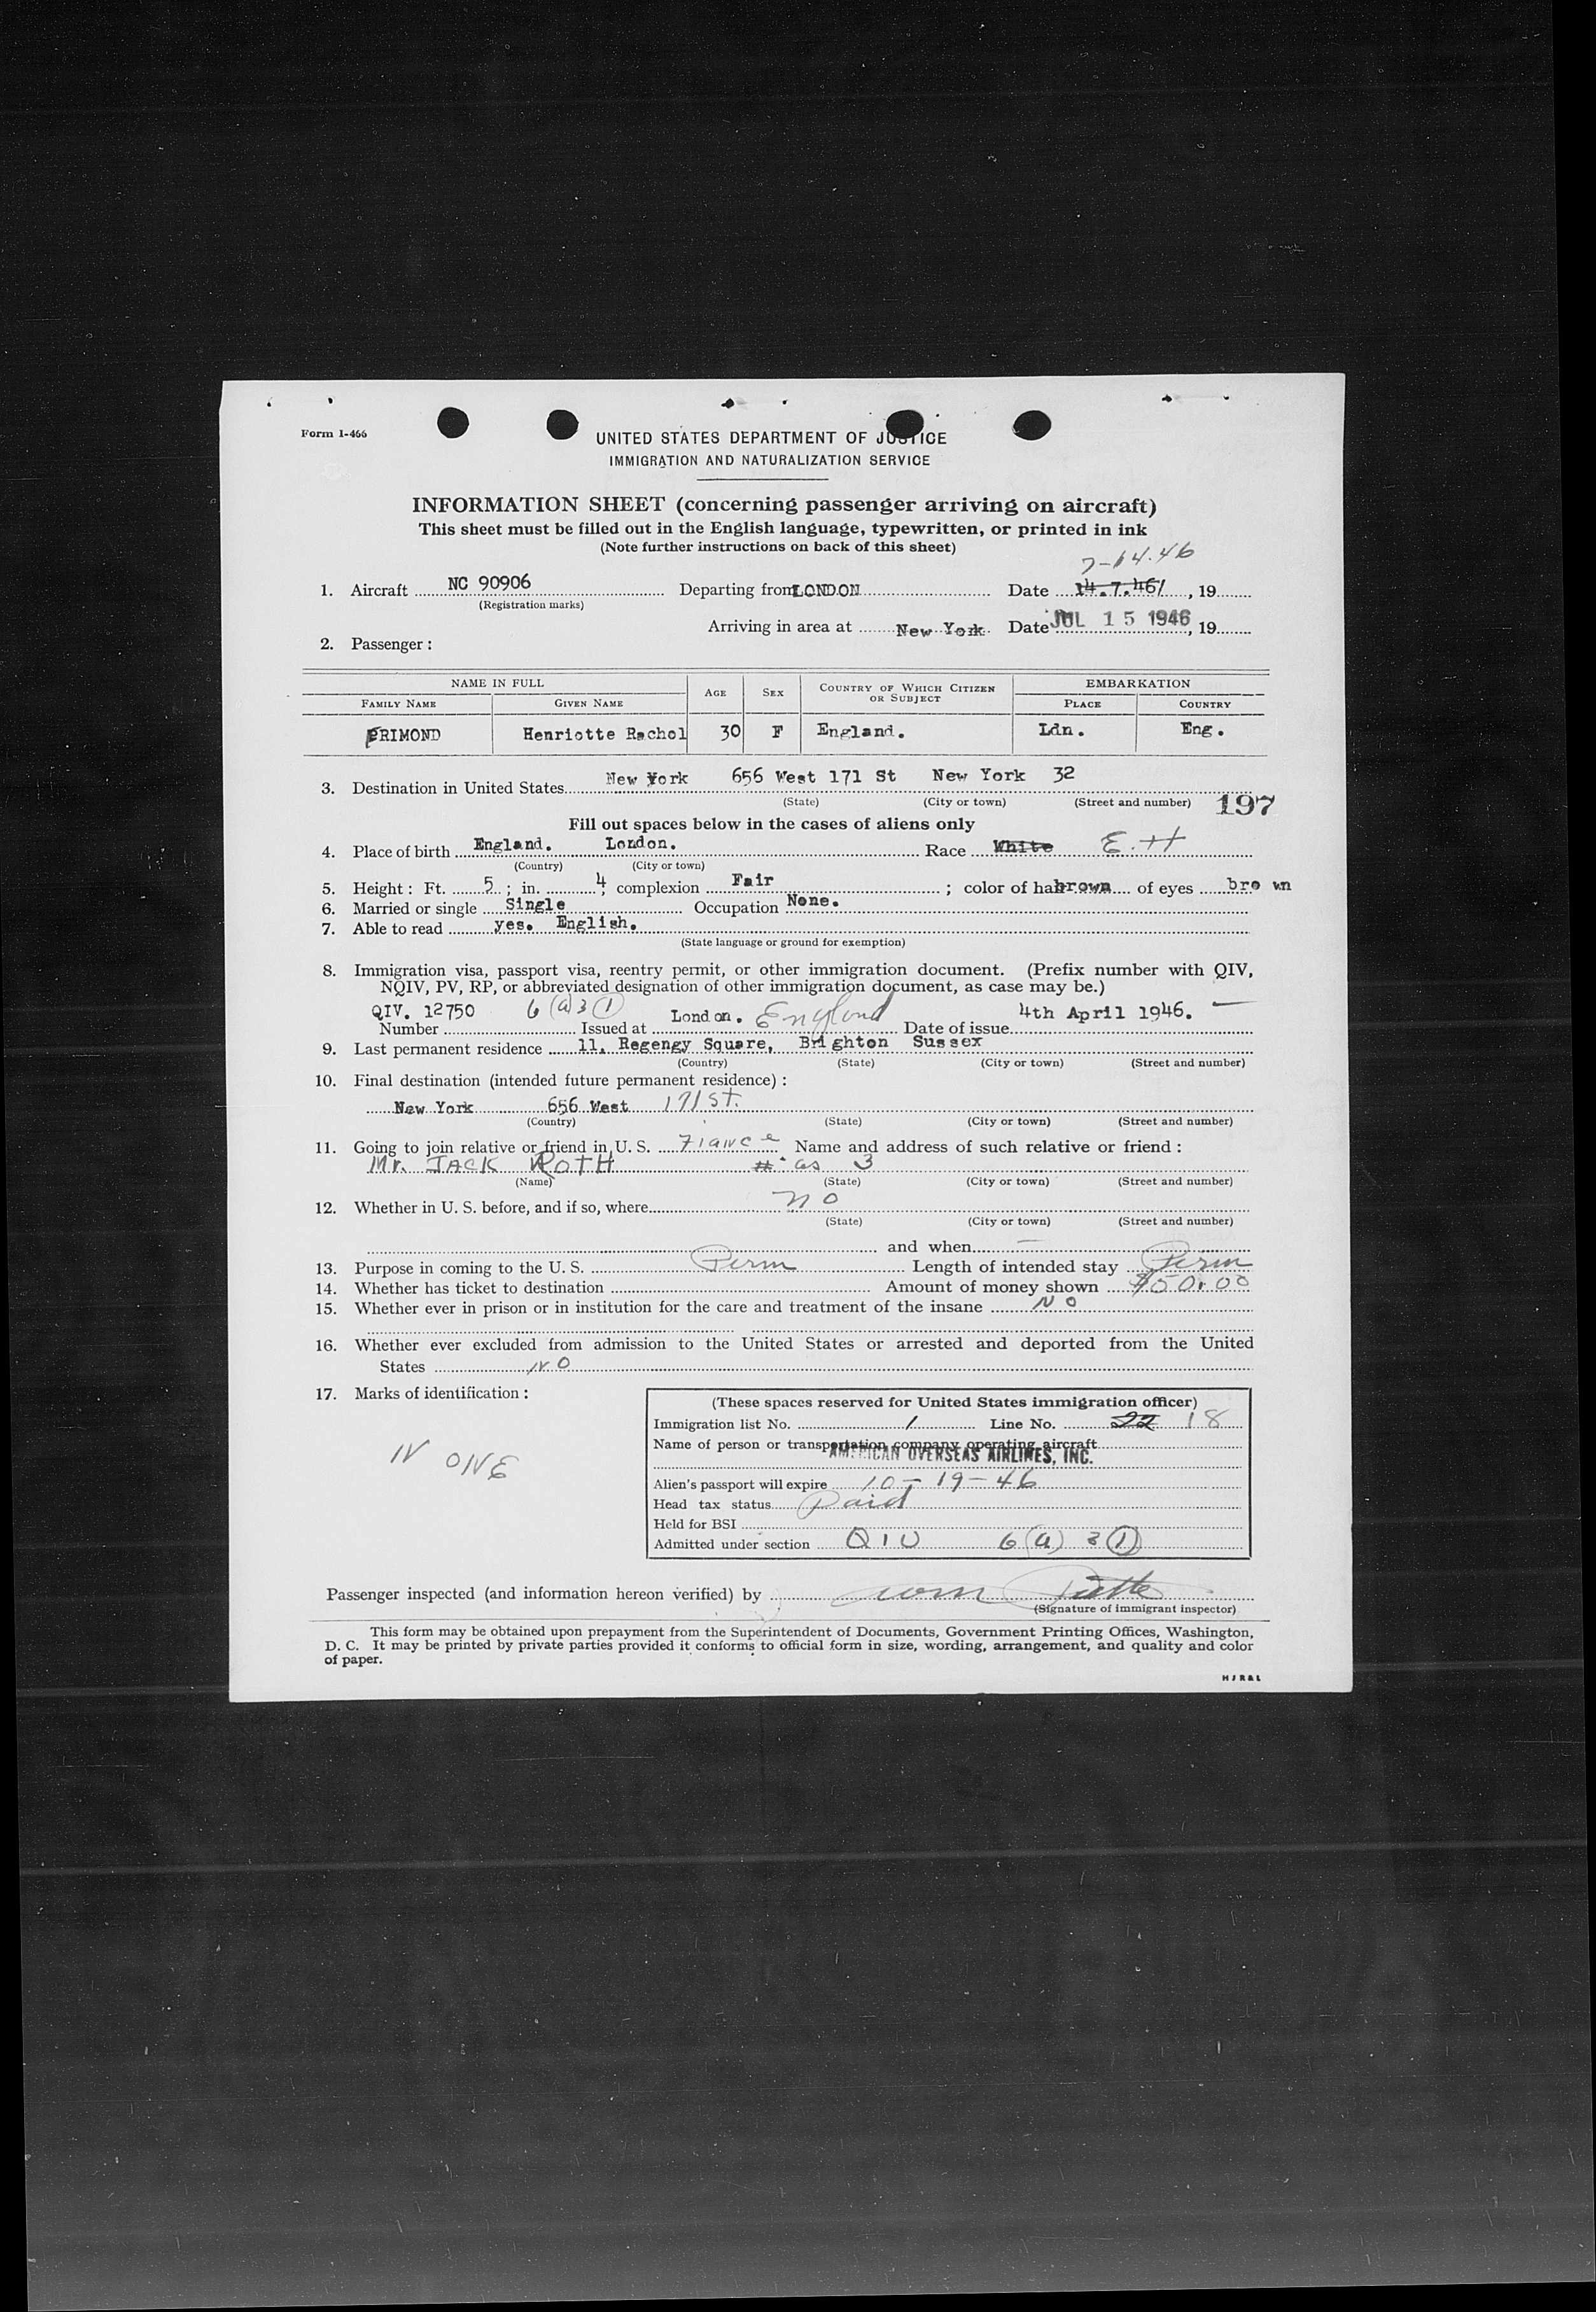 Form I-466
UNITED STATES DEPARTMENT OF JUSTICE
IMMIGRATION AND NATURALIZATION SERVICE
INFORMATION SHEET (concerning passenger arriving on aircraft)
This sheet must be filled out in the English language, typewritten, or printed in ink
(Note further instructions on back of this sheet)
7-14.46
1. Aircraft NC 90906 Departing from LONDON Date 14.7.46/, 19
(Registration marks)
Arriving in area at New York Date JUL 15 1946, 19
2. Passenger:
NAME IN FULL AGE SEX COUNTRY OF WHICH CITIZEN OR SUBJECT EMBARKATION
FAMILY NAME GIVEN NAME PLACE COUNTRY
RIMOND Henriotte Rachol 30 F England. Ldn. Eng.
3. Destination in United States New York 656 West 171 St New York 32
(State) (City or town) (Street and number) 197
Fill out spaces below in the cases of aliens only
4. Place of birth England. London. Race White E.H
(Country) (City or town)
5. Height: Ft. 5; in. 4; complexion Fair; color of hair brown of eyes bro wn
6. Married or single Single Occupation None.
7. Able to read yes. English.
(State language or ground for exemption)
8. Immigration visa, passport visa, reentry permit, or other immigration document. (Prefix number with QIV,
NQIV, PV, RP, or abbreviated designation of other immigration document, as case may be.)
QIV. 12750 6(a)3(1) London. England 4th April 1946. —
Number Issued at Date of issue
9. Last permanent residence 11, Regengy Square, Brighton Sussex
(Country) (State) (City or town) (Street and number)
10. Final destination (intended future permanent residence):
New York 656 West 171 St.
(Country) (State) (City or town) (Street and number)
11. Going to join relative or friend in U. S. Fiance Name and address of such relative or friend:
Mr. JACK ROTH # as 3
(Name) (State) (City or town) (Street and number)
12. Whether in U. S. before, and if so, where no
(State) (City or town) (Street and number)
and when —
13. Purpose in coming to the U. S. Perm Length of intended stay Perm
14. Whether has ticket to destination Amount of money shown $50.00
15. Whether ever in prison or in institution for the care and treatment of the insane NO
16. Whether ever excluded from admission to the United States or arrested and deported from the United
States NO
17. Marks of identification:
NONE
(These spaces reserved for United States immigration officer)
Immigration list No. 1 Line No. 22 18
Name of person or transportation company operating aircraft
AMERICAN OVERSEAS AIRLINES, INC.
Alien's passport will expire 10-19-46
Head tax status Paid
Held for BSI
Admitted under section QIV 6(a) 3(1)
Passenger inspected (and information hereon verified) by
(Signature of immigrant inspector)
This form may be obtained upon prepayment from the Superintendent of Documents, Government Printing Offices, Washington,
D. C. It may be printed by private parties provided it conforms to official form in size, wording, arrangement, and quality and color
of paper.
HJR&L